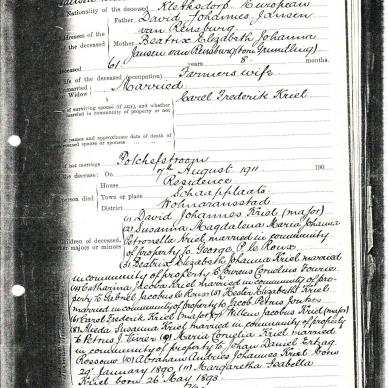 Nationality of the deceased Klerksdorp European
Father David Johannes Jansen
van Rensburg
Addresses of the
the deceased Mother Beatrix Elizabeth Johanna
Jansen van Rensburg (born
61 years 8 months.
deceased
life of the deceased (occupation) Farmers wife
Married
Widow
of surviving spouse (if any), and whether Carel Frederik Kriel
married in community of property or not
names and approximate date of death of
deceased spouse or spouses
of last marriage Potchefstroom
the decease: On 7th August 1911 190
House Residence
person died Town or place Schaapplaats
District Wolmaransstad
(1) David Johannes Kriel (major)
(2) Susanna Magdalena Maria Johanna
Children of deceased, Petronella Kriel married in community
or majors or minors of property to George P. le Roux
(3) Beatrix Elizabeth Johanna Kriel married
in community of property to Lourens Cornelius Fourie.
(4) Catharina Jacoba Kriel married in community of pro-
perty to Gabriel Jacobus le Roux (5) Hester Elizabeth Kriel
married in community of property to Jacob Petrus
(6) Carel Frederik Kriel (major) (7) Willem Jacobus Kriel (major)
(8) Susanna Kriel married in community of property
to Petrus J. (9) Maria Cornelia Kriel married
in community of property to Daniel
Rossouw (10) Abraham Andries Johannes Kriel born
29' January 1890 (11) Margaretha Isabella
Kriel born 26 May 1898